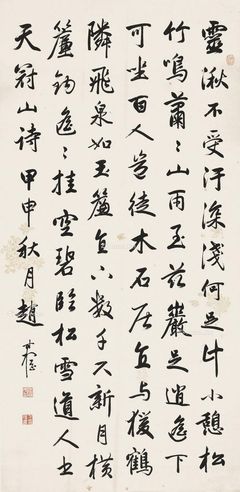 靈湫不受汙深淺何足計小憩松
竹鳴蕭々山雨至茲巖足逍遙下
可坐百人豈徒木石居宜與猨鶴
隣飛泉如玉簾直下數千尺新月橫
簾鈎遙々挂空碧臨松雪道人書
天冠山诗甲申秋月趙